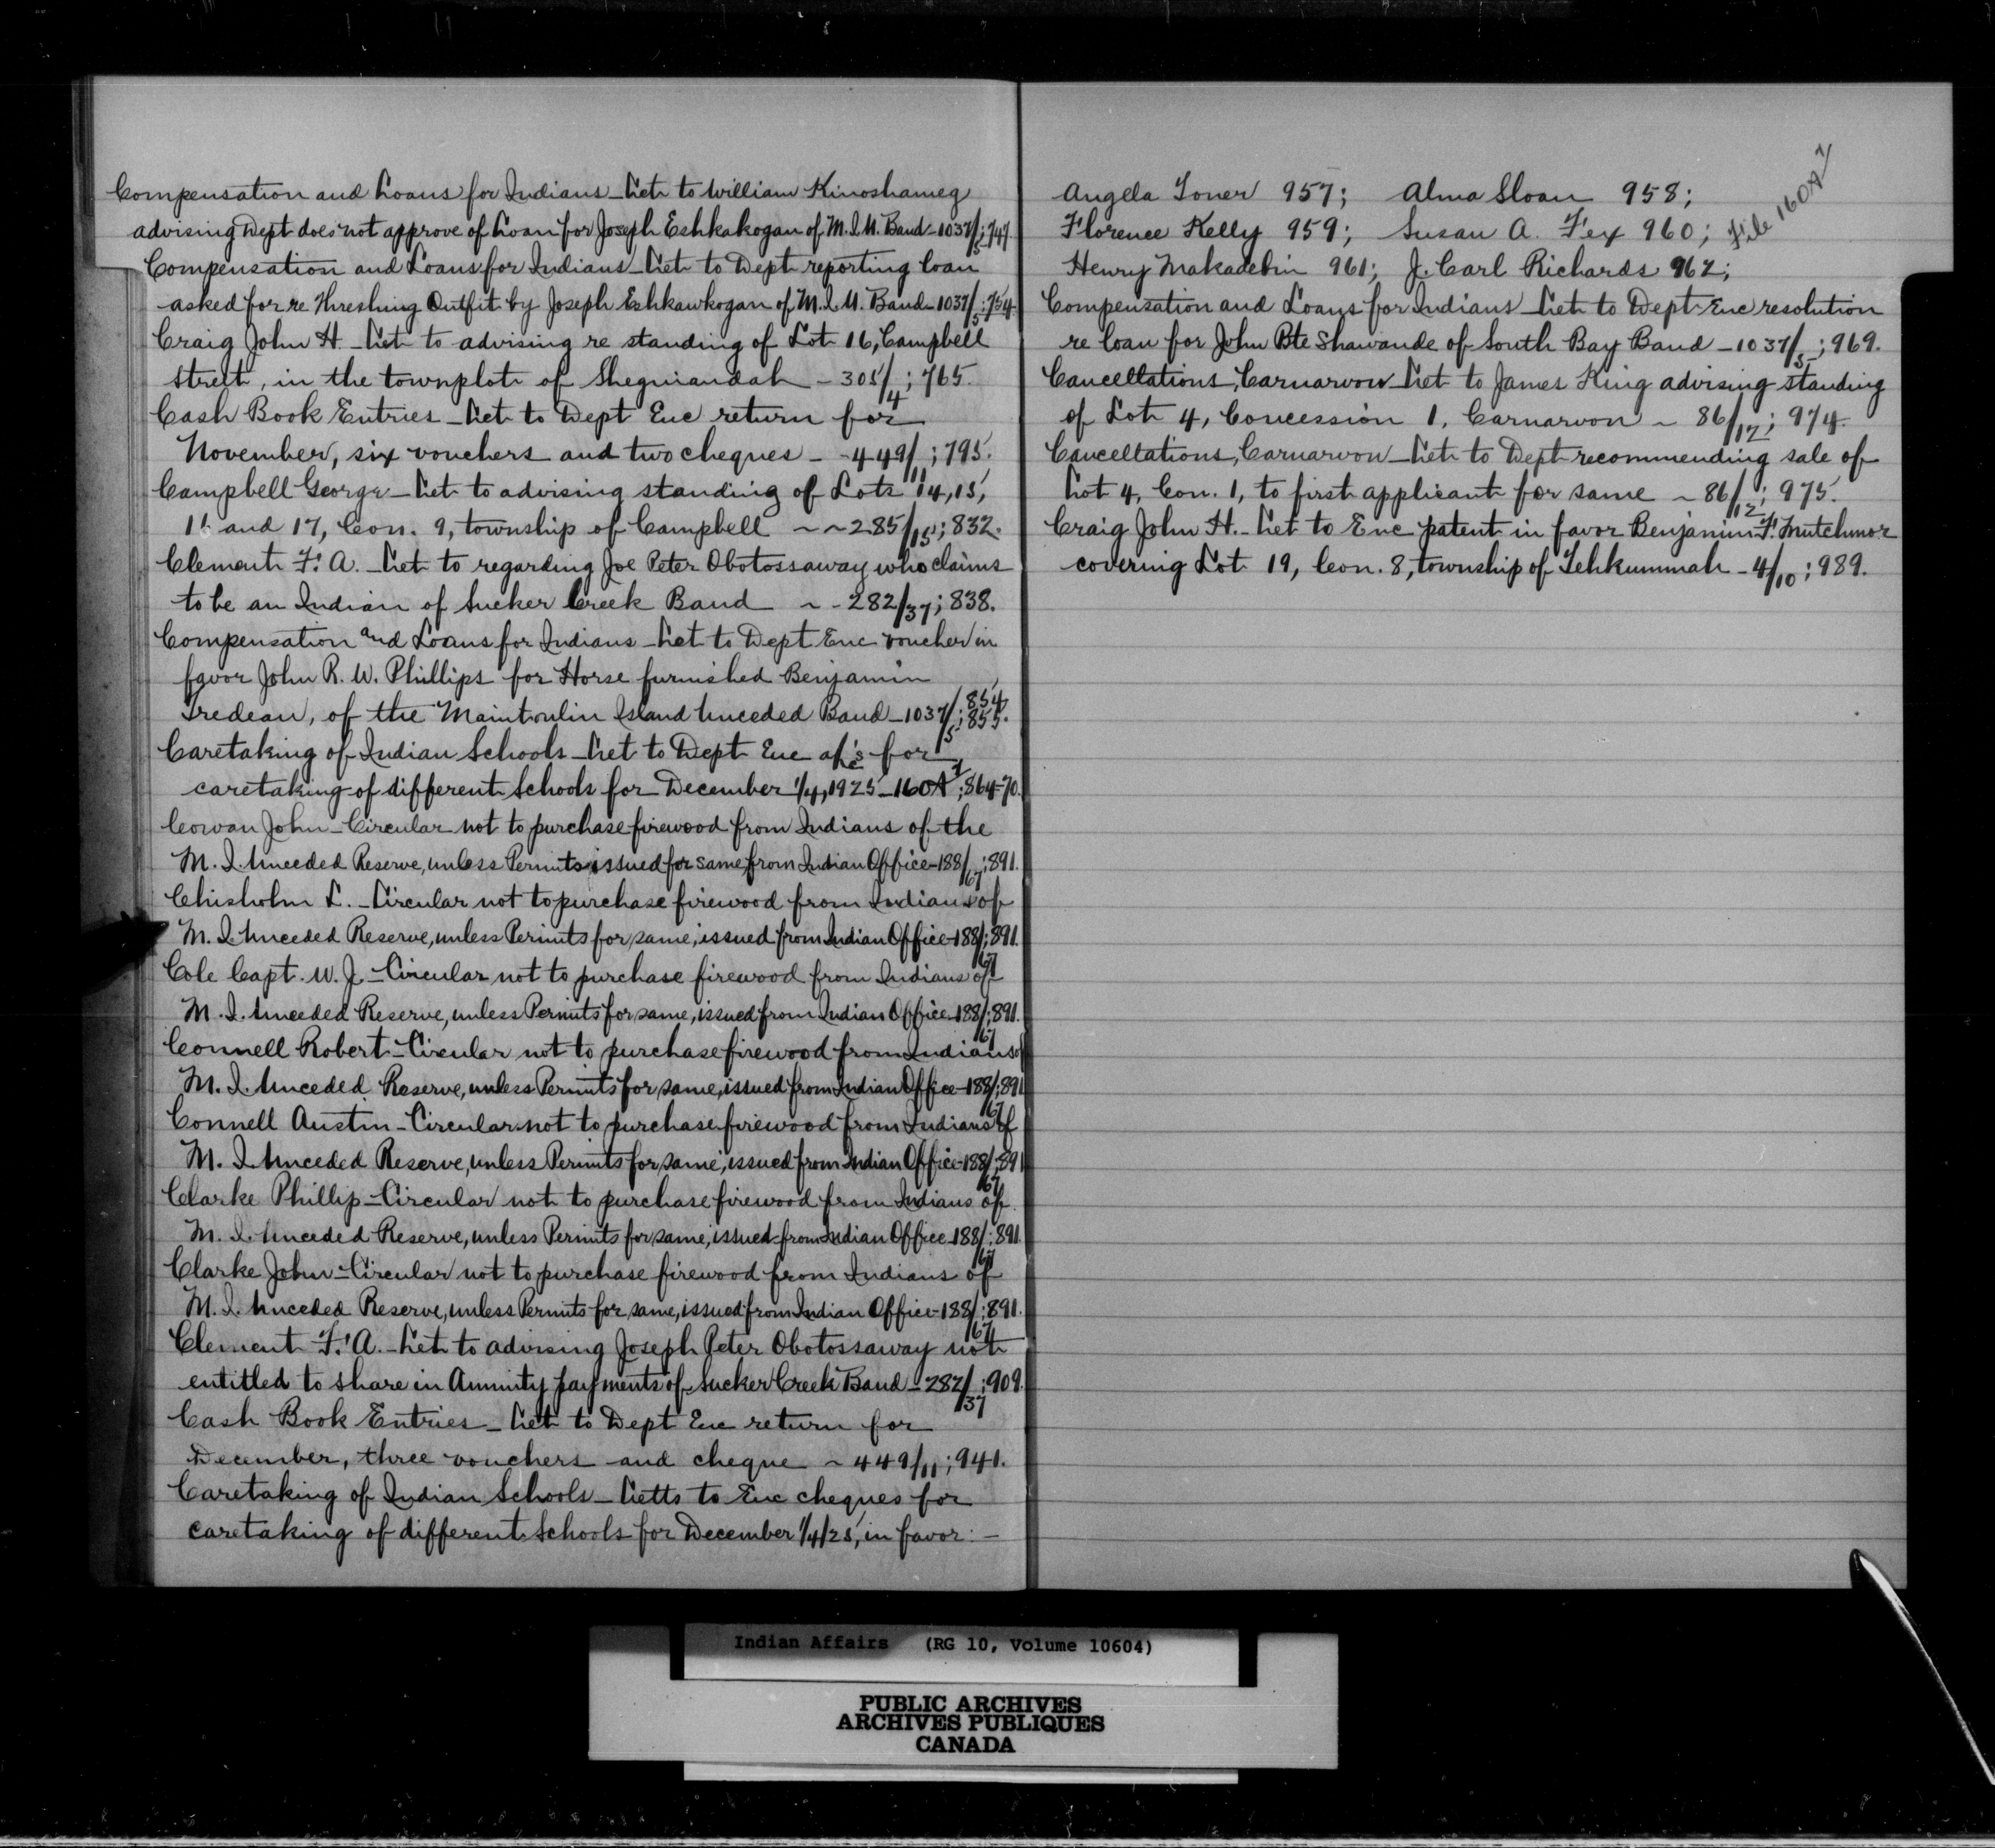 Compensation and Loans for Indians - Let to William Kinoshameg
advising Dept does not approve of Loan for Joseph Eshkakogan of M.I.U. Band - 1037/5; 747.
Compensation and Loans for Indians - Let to Dept reporting loan
asked for re Threshing Outfit by Joseph Eshkawkogan of M.I.U. Band - 1037/5; 754.
Craig John H. - Let to advising re standing of Lot 16, Campbell
street, in the townplot of Sheguiandah - 305/4; 765.
Cash Book Entries - Let to Dept Enc return for
November, six vouchers and two cheques - - 449/11; 795.
Campbell George - Let to advising standing of Lots 14, 15,
16 and 17, Con. 9, township of Campbell ~ ~ 285/15; 832.
Clement F. A. - Let to regarding Joe Peter Obotossaway who claims
to be an Indian of Sucker Creek Band ~ - 282/37; 838.
Compensation and Loans for Indians - Let to Dept Enc voucher in
favor John R. W. Phillips for Horse furnished Benjamin
Fredeau, of the Maintoulin Island Unceded Band - 1037/5; 854, 855.
Caretaking of Indian Schools - Let to Dept Enc a/c's for
caretaking of different Schools for December 1/4, 1925 - 160A²; 864-70.
Cowan John - Circular not to purchase firewood from Indians of the
M. I. Unceded Reserve, unless Permits issued for same, from Indian Office - 188/67; 891.
Chisholm L. - Circular not to purchase firewood from Indians of
M. I. Unceded Reserve, unless Permits for same, issued from Indian Office - 188/67; 891.
Cole Capt. W. J. - Circular not to purchase firewood from Indians of
M. I. Unceded Reserve, unless Permits for same, issued from Indian Office - 188/67; 891.
Connell Robert - Circular not to purchase firewood from Indians of
M. I. Unceded Reserve, unless Permits for same, issued from Indian Office - 188/67; 891
Connell Austin - Circular not to purchase firewood from Indians of
M. I. Unceded Reserve, unless Permits for same, issued from Indian Office - 188/67; 891
Clarke Phillip - Circular not to purchase firewood from Indians of
M. I. Unceded Reserve, unless Permits for same, issued from Indian Office - 188/67; 891.
Clarke John - Circular not to purchase firewood from Indians of
M. I. Unceded Reserve, unless Permits for same, issued from Indian Office - 188/67; 891.
Clement F. A. - Let to advising Joseph Peter Obotossaway not
entitled to share in Annuity payments of Sucker Creek Band - 282/37; 909.
Cash Book Entries - Let to Dept Enc return for
December, three vouchers and cheque ~ 449/11; 941.
Caretaking of Indian Schools - Letts to Enc cheques for
caretaking of different Schools for December 1/4/25, in favor: -
Angela Toner 957; Alma Sloan 958;
Florence Kelly 959; Susan A. Fex 960;
File 160A²
Henry Makadebin 961; J. Carl Richards 962;
Compensation and Loans for Indians - Let to Dept Enc resolution
re loan for John Bte Shawande of South Bay Band - 1037/5; 969.
Cancellations, Carnarvon - Let to James King advising standing
of Lot 4, Concession 1, Carnarvon ~ 86/12; 974.
Cancellations, Carnarvon - Let to Dept recommending sale of
Lot 4, Con. 1, to first applicant for same ~ 86/12; 975.
Craig John H. - Let to Enc patent in favor Benjamin F. Mutchmor
covering Lot 19, Con. 8, township of Tehkummah - 4/10; 989.
Indian Affairs (RG 10, Volume 10604)
PUBLIC ARCHIVES
ARCHIVES PUBLIQUES
CANADA